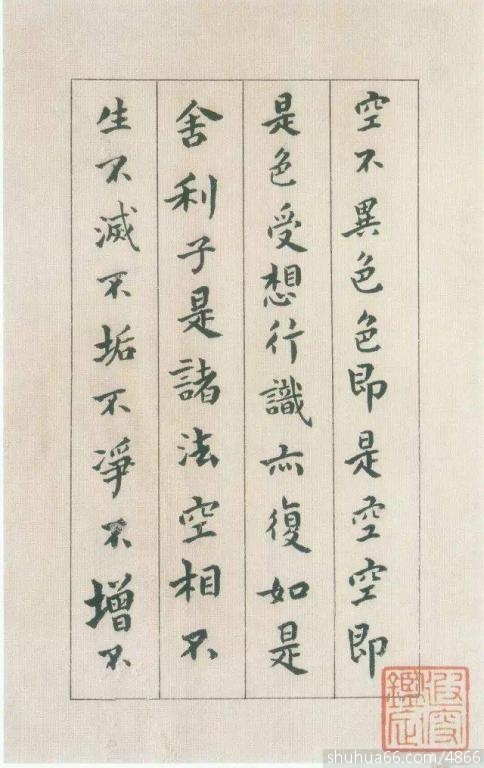 空不異色色即是空空即
是色受想行識亦復如是
舍利子是諸法空相不
生不滅不垢不淨不增不
shuhua66.com/4866